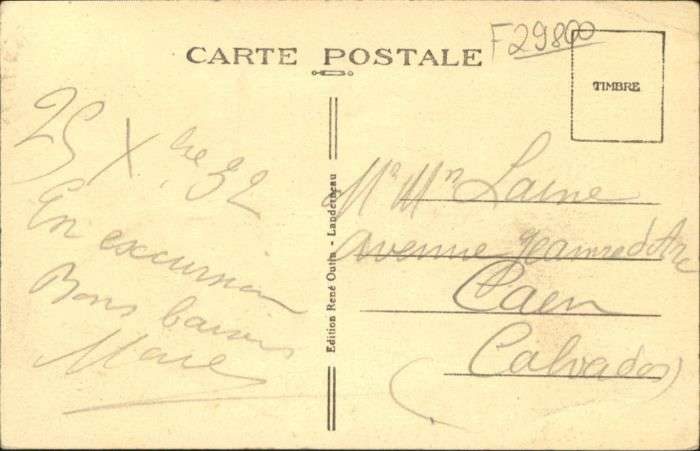 F29800
CARTE POSTALE
TIMBRE
25 Xbre 32
En excursion
Bons baisers
Marie
Edition René Outin - Landerneau
Mr Mm Laine
avenue Jeanne d'Arc
Caen
(Calvados)